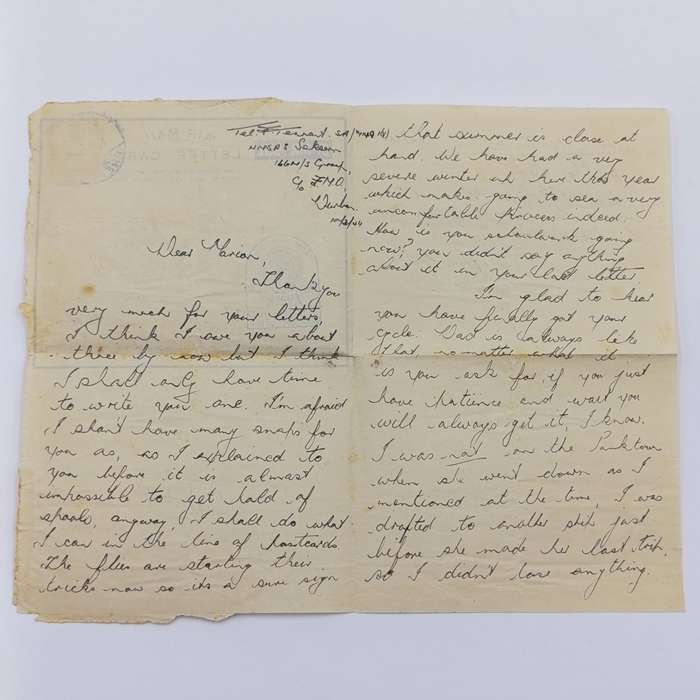 AIR MAIL
LETTER CARD
Tel. Tennant. SA
HMSAS Seksern
166 M/S Group,
c/o F.M.O.
Durban.
Dear Marion,
Thank you
very much for your letters,
I think I owe you about
three by now but I think
I shall only have time
to write you one. I'm afraid
I shan't have many snaps for
you as, as I explained to
you before it is almost
impossible to get hold of
spools, anyway, I shall do what
I can in the line of postcards
The flies are starting their
tricks now so its a sure sign
that summer is close at
hand. We have had a very
severe winter here this year
which makes going to sea a very
uncomfortable indeed.
How is your schoolwork going
now? you didn't say anything
about it in your last letter
I'm glad to hear
you have finally got your
cycle. Dad is always like
that no matter what it
is you ask for, if you just
have patience and wait you
will always get it, I know.
I was not on the Parktown
when she went down as I
mentioned at the time, I was
drafted to another ship just
before she made her last trip,
so I didn't lose anything.